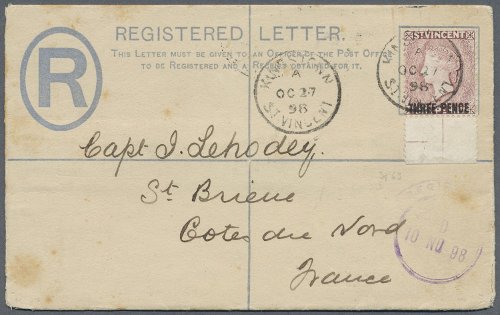 REGISTERED LETTER.
THIS LETTER MUST BE GIVEN TO AN OFFICER OF THE POST OFFICE
TO BE REGISTERED AND A RECEIPT OBTAINED FOR IT.
R
ST VINCENT
THREE PENCE
A
OC 27
98
ST VINCENT
A
OC 27
98
Capt J. Lehodey.
St Brieuc
Cotes du Nord
France
D
10 NO 98